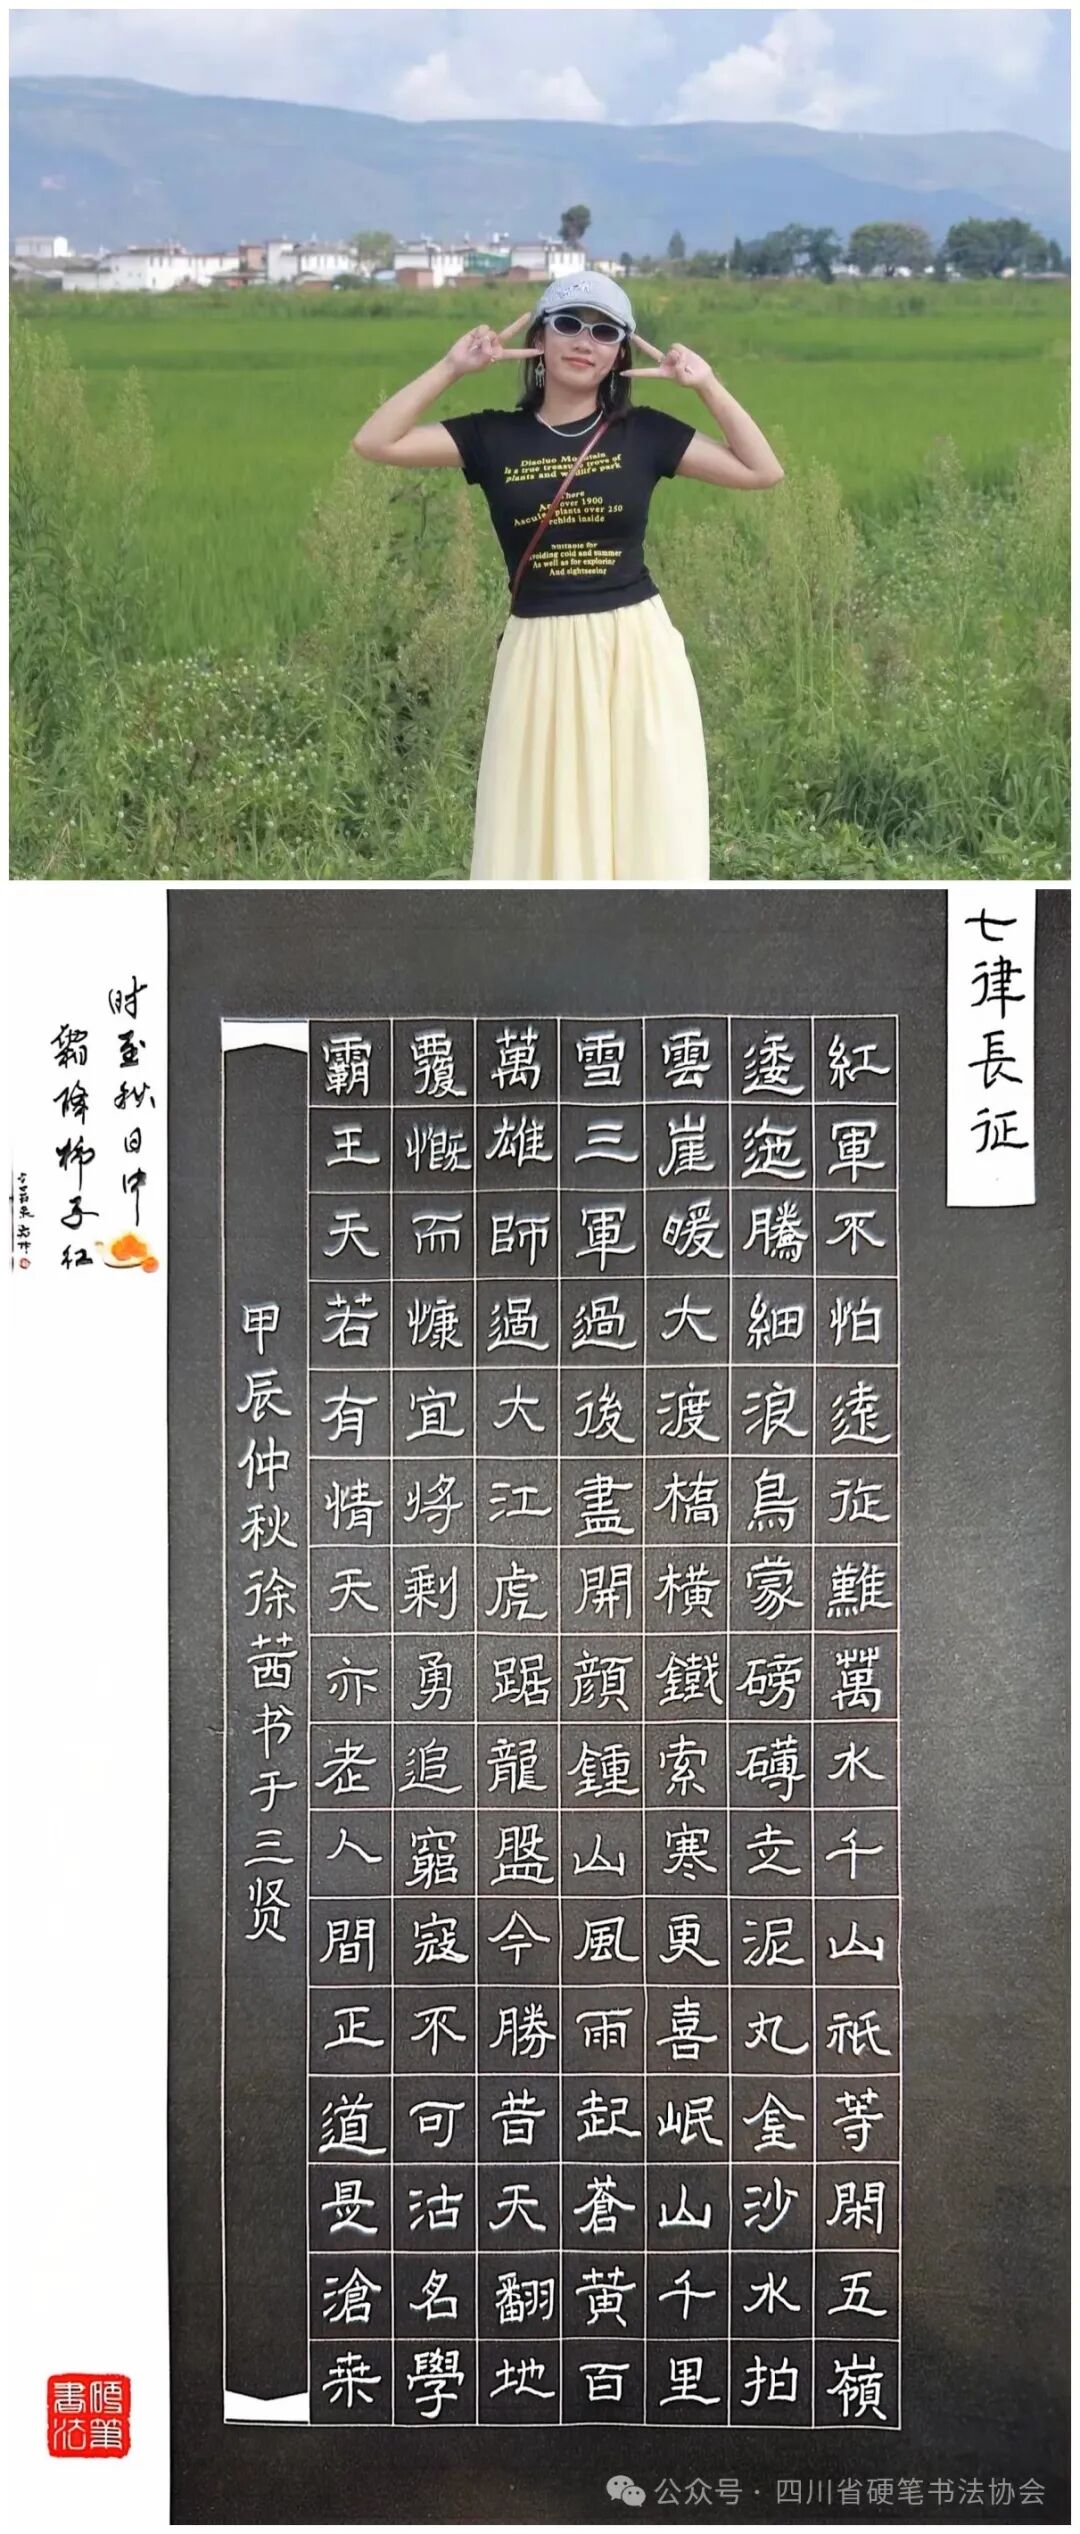 Diaoluo Mountain
Is a true treasure trove of
plants and wildlife park
There
Are over 1900
Ascular plants over 250
Orchids inside
Suitable for
Avoiding cold and summer
As well as for exploring
And sightseeing
七律長征
紅軍不怕遠征難萬水千山祇等閑五嶺
逶迤騰細浪鳥蒙磅礴走泥丸金沙水拍
雲崖暖大渡橋橫鐵索寒更喜岷山千里
雪三軍過後盡開顏鍾山風雨起蒼黃百
萬雄師過大江虎踞龍盤今勝昔天翻地
覆慨而慷宜將剩勇追窮寇不可沽名學
霸王天若有情天亦老人間正道是滄桒
甲辰仲秋徐茜书于三贤
时至秋日中
霜降柿子红
硬筆
書法
公众号·四川省硬笔书法协会